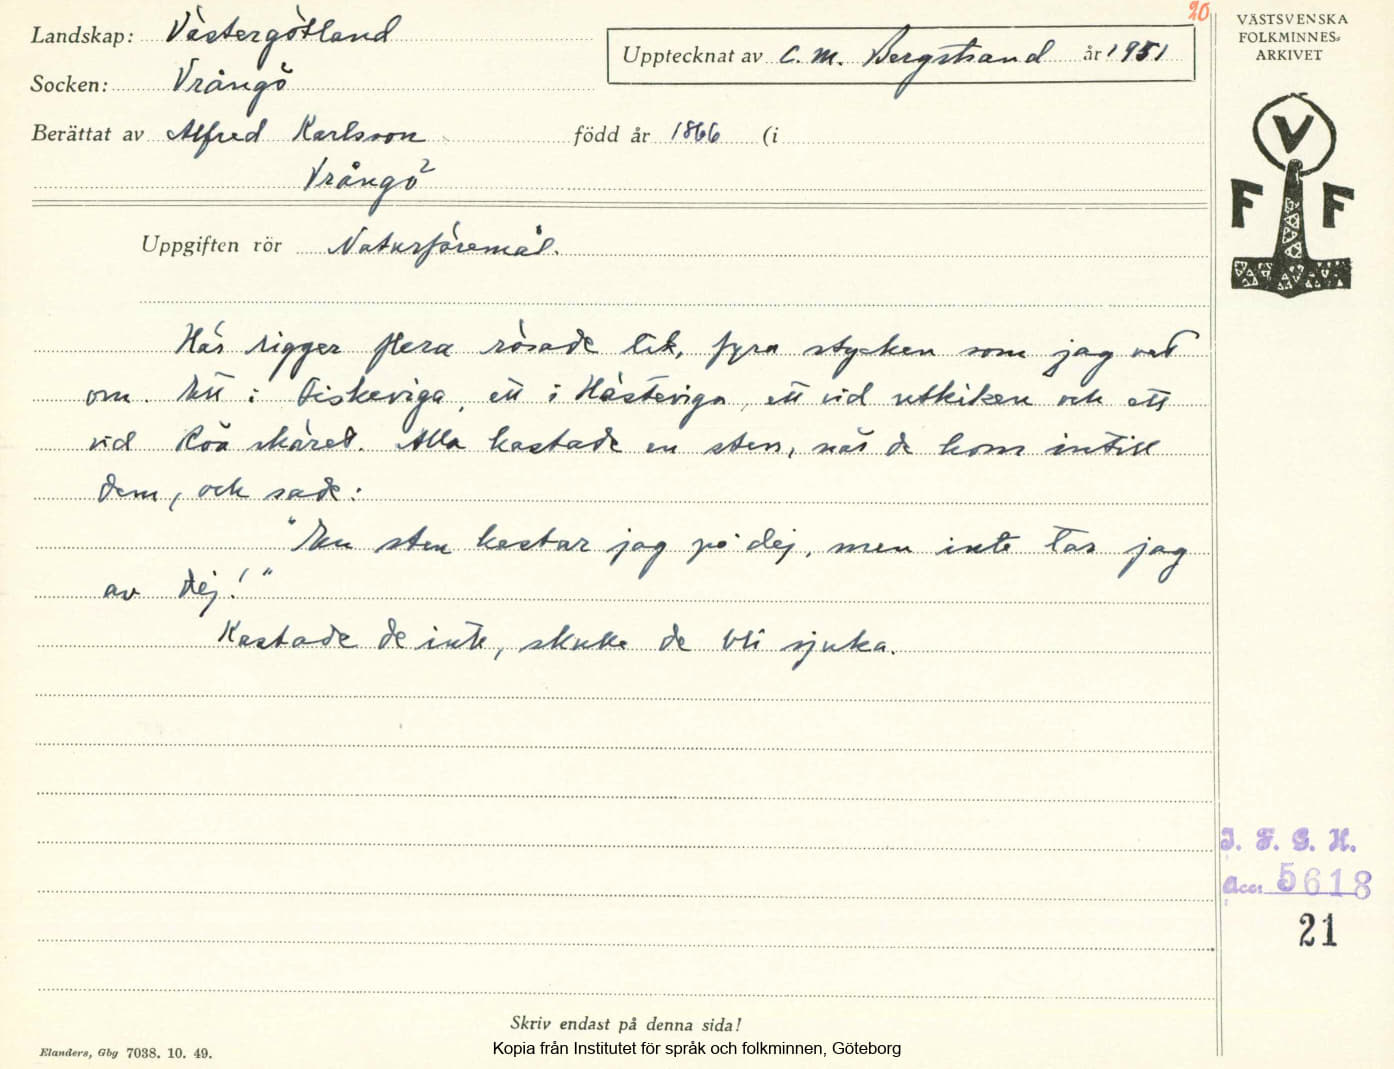 20
VÄSTSVENSKA
FOLKMINNES-
ARKIVET
Landskap: Västergötland
Upptecknat av C. M. Bergstrand år 1951
Socken: Vrångö
Berättat av Alfred Karlsson född år 1866 (i
Vrångö
V
F F
Uppgiften rör Naturföremål.
Här ligger flera rösade lik, fyra stycken som jag vet
om. Ett i Fiskeviga, ett i Hästeviga, ett vid utkiken och ett
vid Röa skäret. Alla kastade en sten, när de kom intill
dem, och sade:
"En sten kastar jag på dej, men inte tar jag
av dej!"
Kastade de inte, skulle de bli sjuka.
I. F. G. H.
Acc: 5618
21
Skriv endast på denna sida!
Elanders, Gbg 7038. 10. 49.
Kopia från Institutet för språk och folkminnen, Göteborg